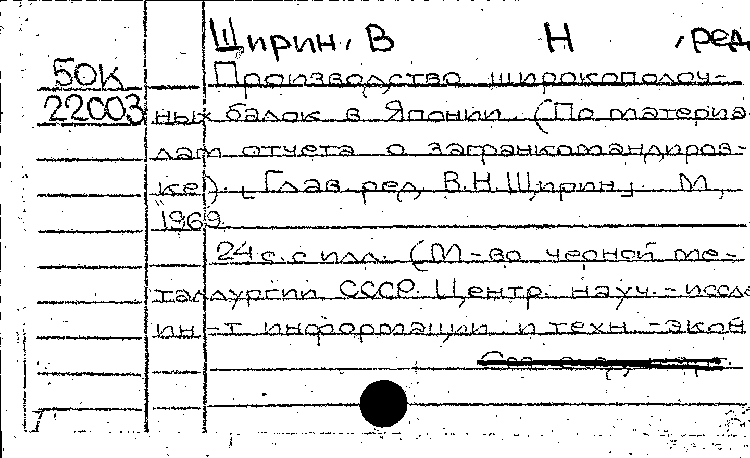 Щирин, В Н , ред
50К Производство широкополоч-
22003 ных балок в Японии. (По материа
лам отчета о загранкомандиров-
ке). [Глав. ред. В.Н. Щирин]. М.,
1969.
24 с. с илл. (М-во черной ме-
таллургии СССР. Центр. науч.-иссле
ин-т информации и техн.-экон